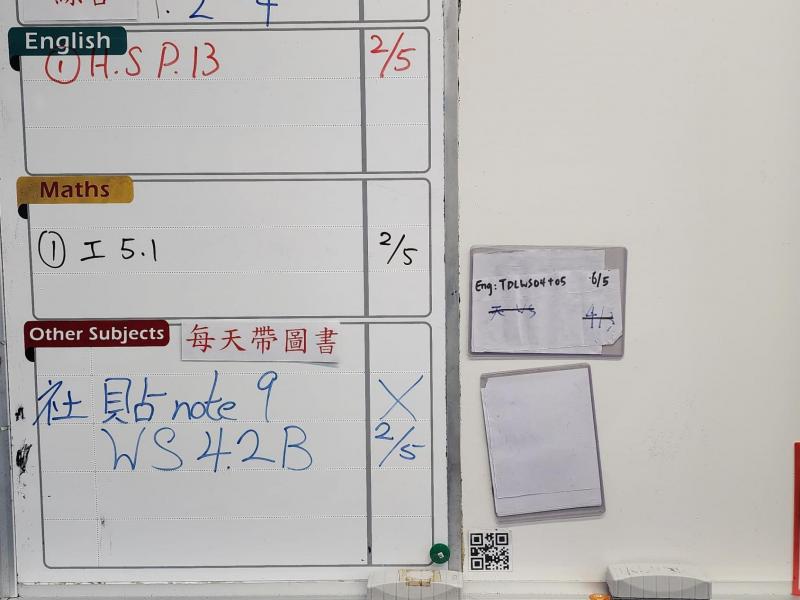 English
① H.S P.13 2/5
Maths
① 工 5.1 2/5
Other Subjects 每天帶圖書
社 貼note 9 X
WS 4.2B 2/5
Eng: TDLWS04+05 6/5